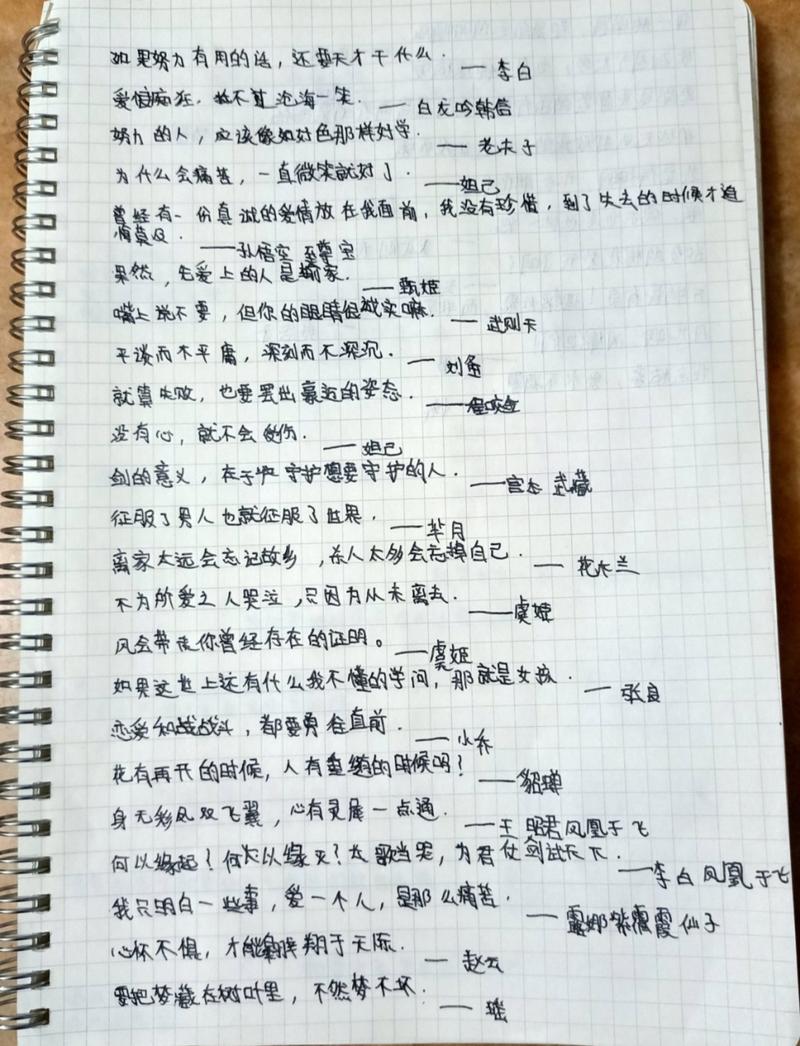 如果努力有用的话，还要天才干什么．——李白
爱恨痴狂，敌不算沧海一笑．——白龙吟韩信
努力的人，应该像好色那样好学．——老夫子
为什么会痛苦，一直微笑就好了．——妲己
曾经有一份真诚的爱情放在我面前，我没有珍惜，到了失去的时候才追
悔莫及．——孙悟空 至尊宝
果然，先爱上的人是输家．——甄姬
嘴上说不要，但你的眼睛很诚实嘛．——武则天
平淡而不平庸，深刻而不深沉．——刘备
就算失败，也要摆出豪迈的姿态．——程咬金
没有心，就不会受伤．——妲己
剑的意义，在于守护想要守护的人．——宫本 武藏
征服了男人也就征服了世界．——芈月
离家太远会忘记故乡，杀人太多会忘掉自己．——花木兰
不为所爱之人哭泣，只因为从未离去．——虞姬
风会带走你曾经存在的证明。——虞姬
如果这世上还有什么我不懂的学问，那就是女孩．——张良
恋爱和战战斗，都要勇往直前．——小乔
花有再开的时候，人有重逢的时候吗？——貂蝉
身无彩凤双飞翼，心有灵犀一点通．——王昭君凤凰于飞
何以缘起？何以缘灭？长歌当哭，为君仗剑试天下．——李白凤凰于飞
我只明白一些事，爱一个人，是那么痛苦．——露娜紫霞仙子
心怀不惧，才能翱翔于天际．——赵云
要把梦藏在树叶里，不然梦不坏．——瑶